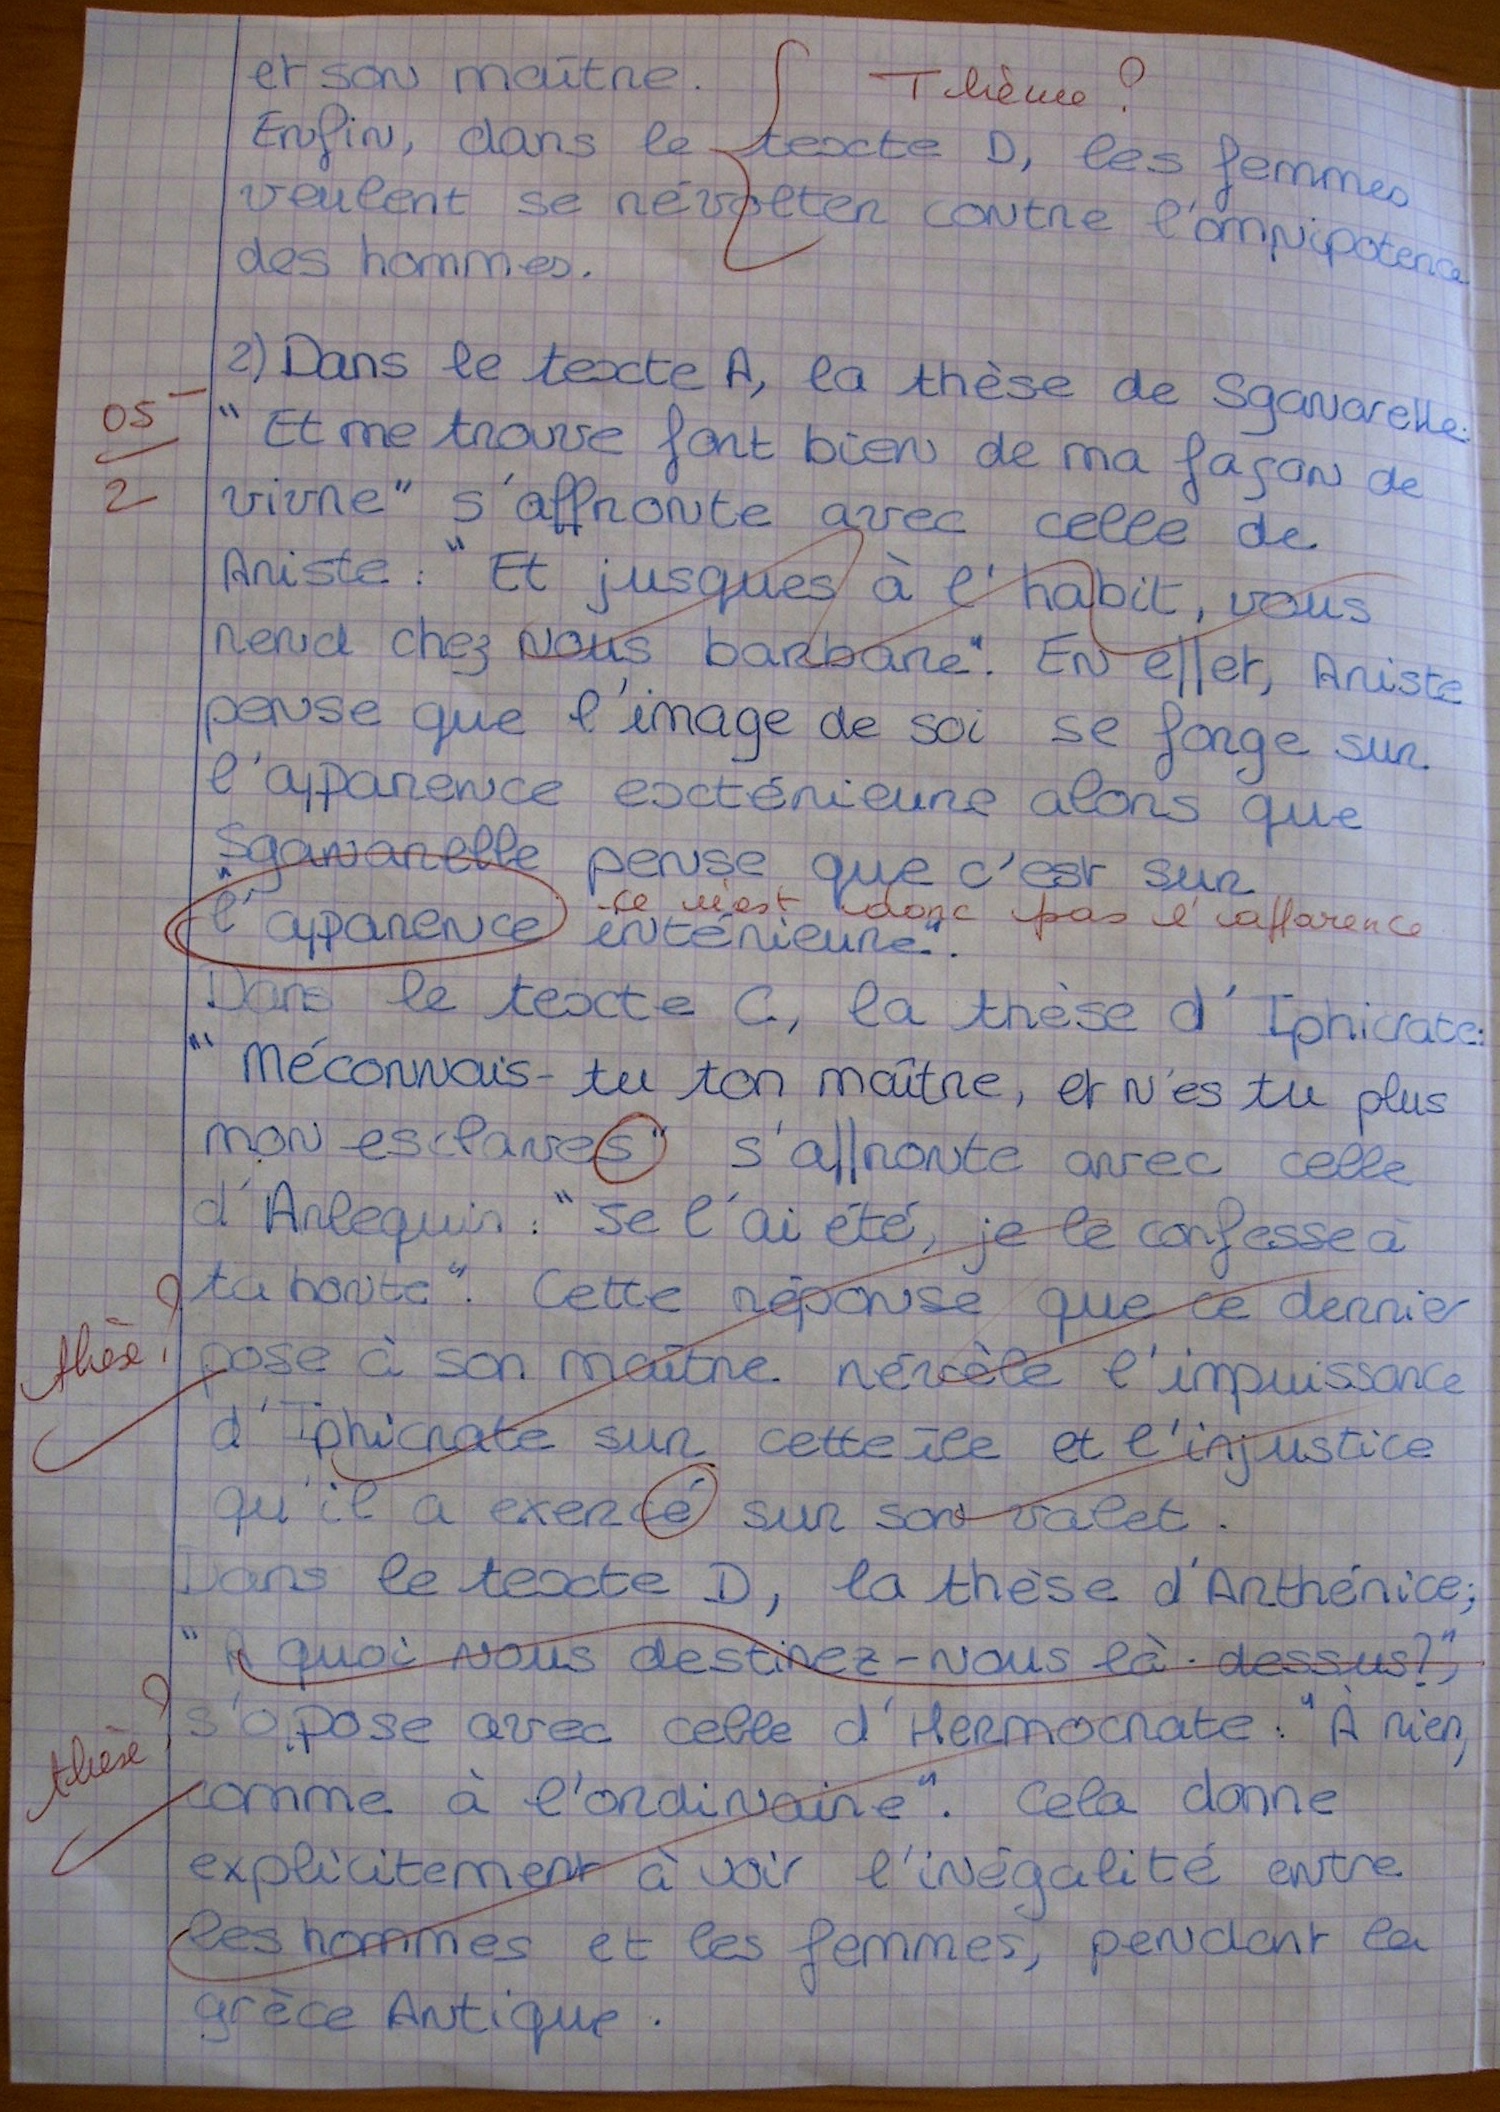 et son maître.
Thème ?
Enfin, dans le texte D, les femmes
veulent se révolter contre l'omnipotence
des hommes.
2) Dans le texte A, la thèse de Sganarelle:
05-
"Et me trouve fort bien de ma façon de
2
vivre" s'affronte avec celle de
Ariste : "Et jusques à l'habit, vous
rend chez nous barbare". En effet, Ariste
pense que l'image de soi se forge sur
l'apparence extérieure alors que
Sganarelle pense que c'est sur
ce n'est donc pas l'apparence
"l'apparence intérieure".
Dans le texte C, la thèse d'Iphicrate:
"Méconnais-tu ton maître, et n'es tu plus
mon esclaves" s'affronte avec celle
d'Arlequin : "Je l'ai été, je le confesse à
ta honte". Cette réponse que ce dernier
thèse ?
pose à son maître révèle l'impuissance
d'Iphicrate sur cette île et l'injustice
qu'il a exercé sur son valet.
Dans le texte D, la thèse d'Arthénice;
"A quoi nous destinez-vous là-dessus?",
s'opose avec celle d'Hermocrate : "À rien,
thèse ?
comme à l'ordinaire". Cela donne
explicitement à voir l'inégalité entre
les hommes et les femmes, pendant la
grèce Antique.